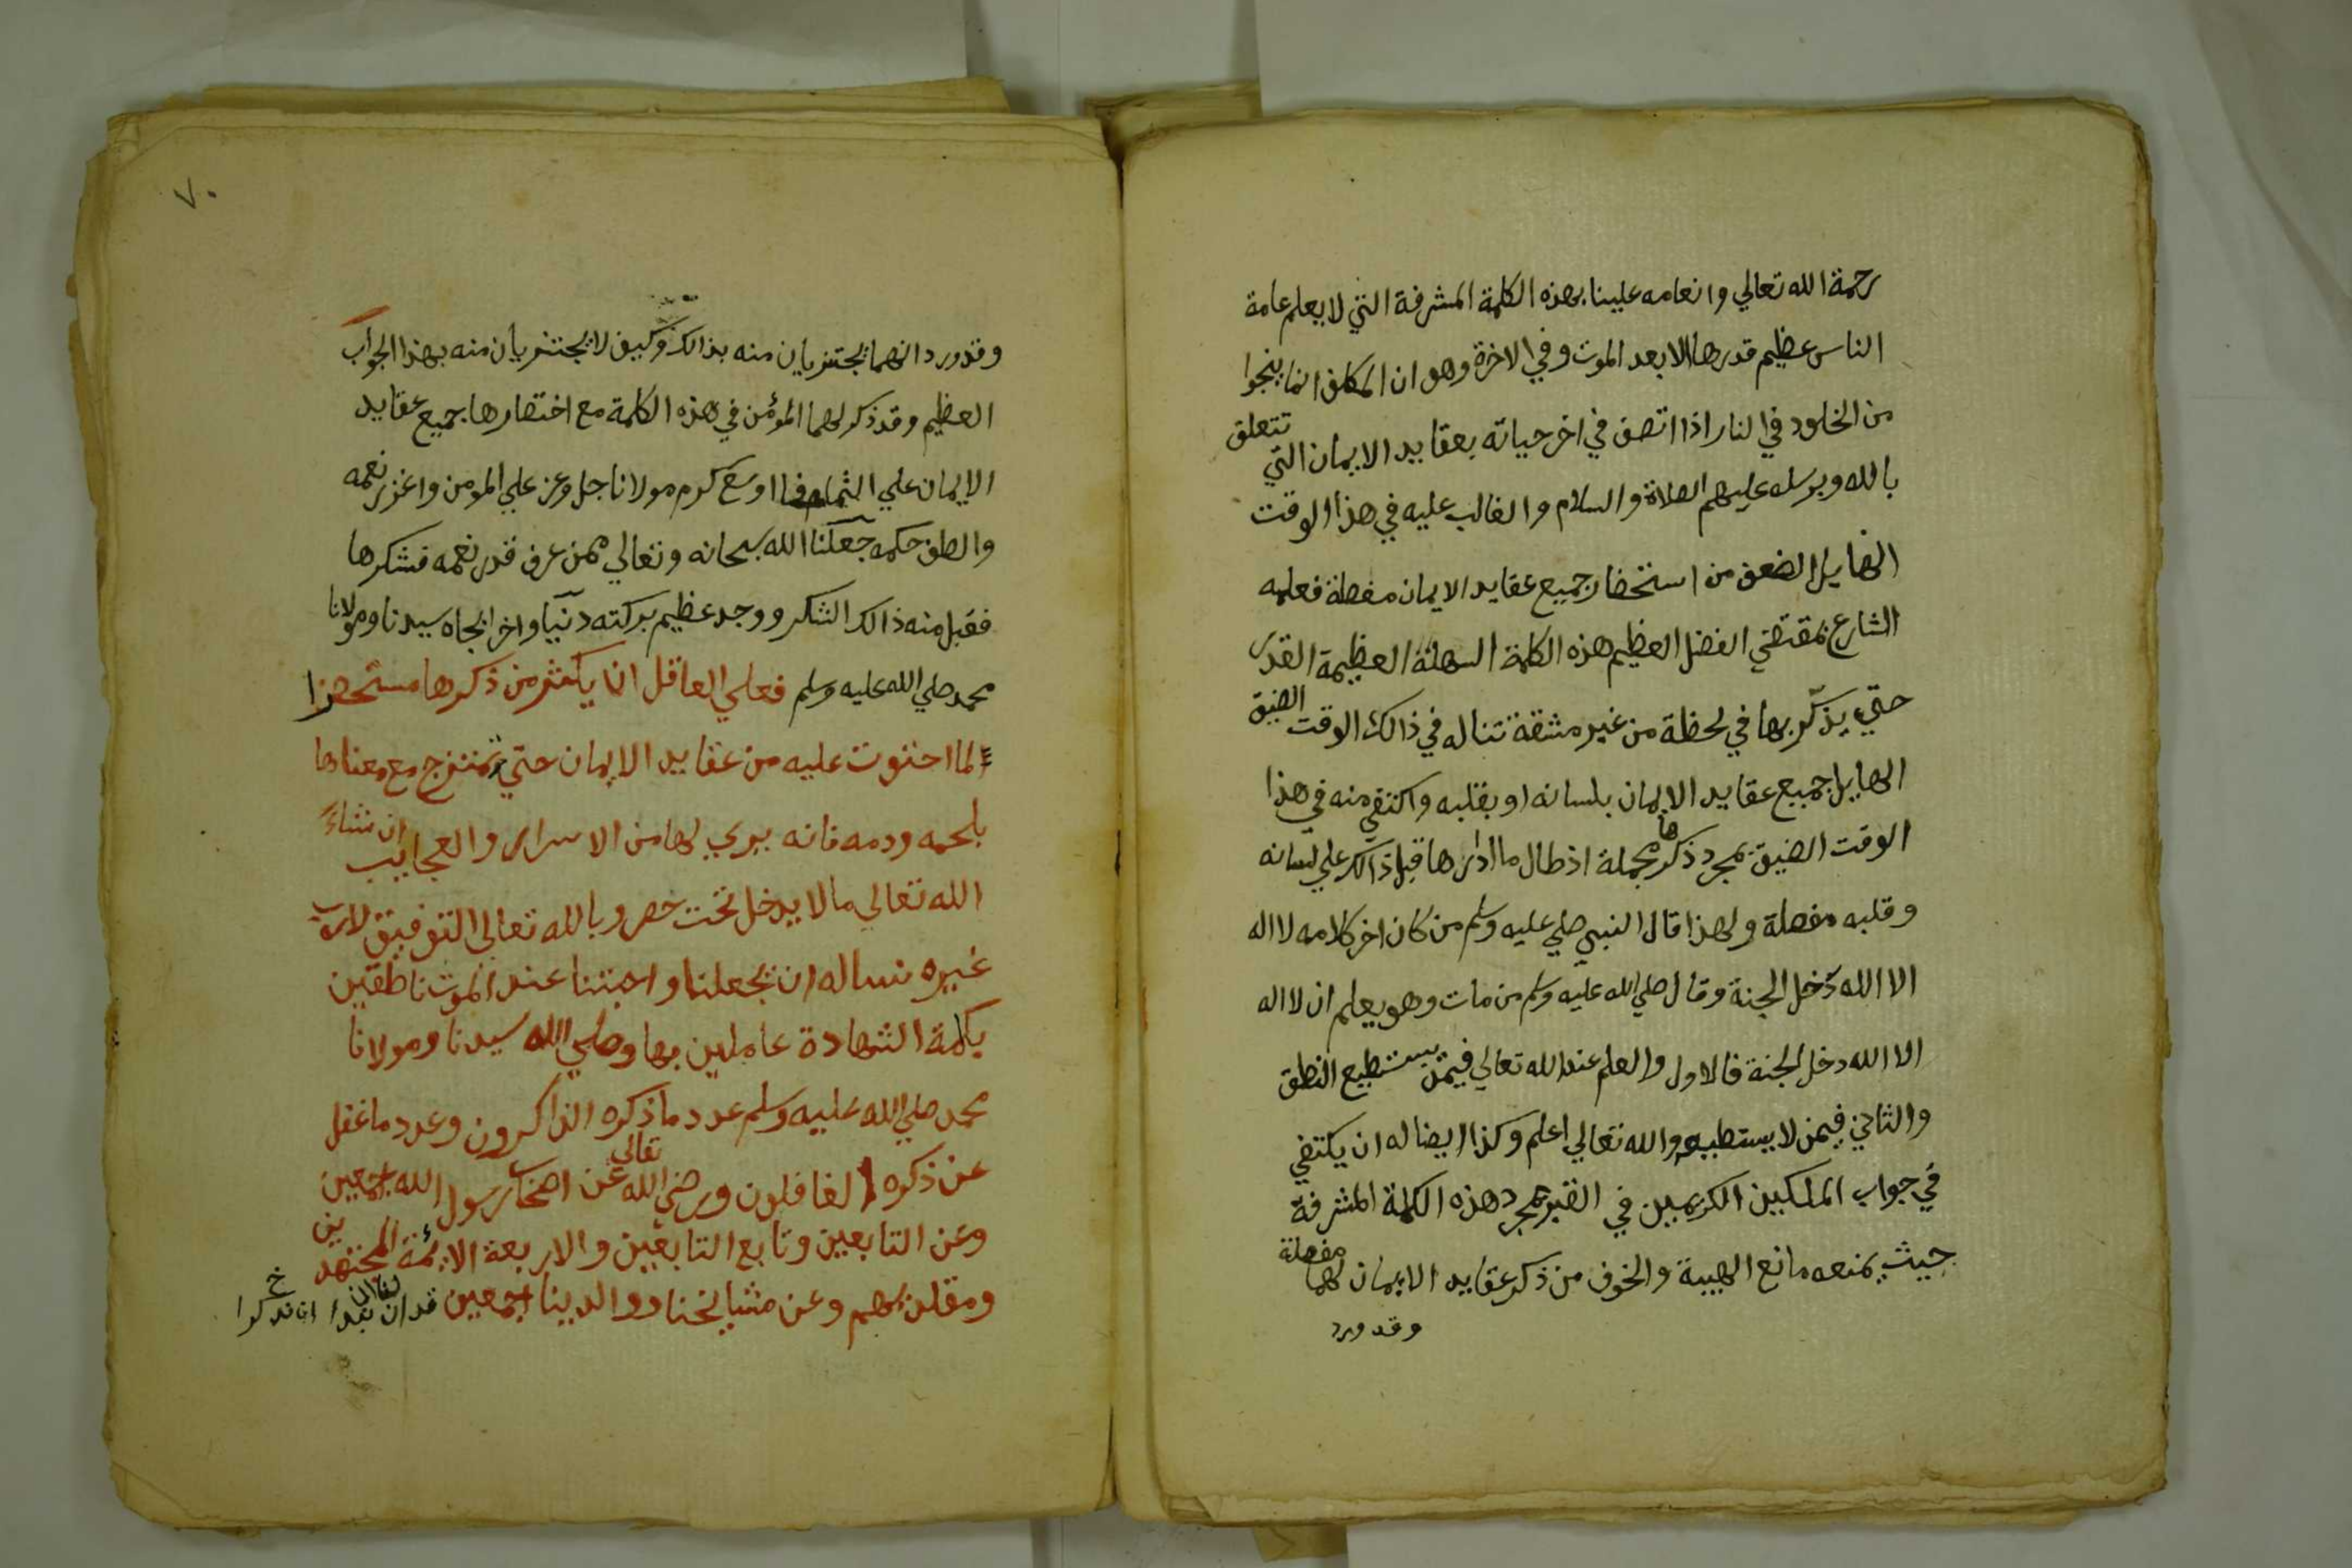 رحمة الله تعالي وانعامه علينا بهذه الكلمة المشرفة التي لا يعلم عامة
الناس عظيم قدرها الا بعد الموت وفي الاخرة وهو ان المكلف انما ينجوا
من الخلود في النار اذا اتصف في اخر حياته بعقايد الايمان التي تتعلق
بالله وبرسله عليهم الصلاة والسلام والغالب عليه في هذا الوقت
الهايل الضعف من استحضار جميع عقايد الايمان مفصلة فعلمه
الشارع بمقتضي الفضل العظيم هذه الكلمة السهلة العظيمة القدر
حتي يذكر بها في لحظة من غير مشقة تناله في ذالك الوقت الضيق
الهايل جميع عقايد الايمان بلسانه او بقلبه واكتفي منه في هذا
الوقت الضيق بمجرد ذكرها مجملة اذ طال ما ادارها قبل ذالك علي لسانه
وقلبه مفصلة ولهذا قال النبي صلي عليه وسلم من كان اخر كلامه لا اله
الا الله دخل الجنة وقال صلي الله عليه وسلم من مات وهو يعلم ان لا اله
الا الله دخل الجنة فالاول والعلم عند الله تعالي فيمن يستطيع النطق
والثاني فيمن لا يستطيعه والله تعالي اعلم وكذا ايضا له ان يكتفي
في جواب الملكين الكريمين في القبر بمجرد هذه الكلمة المشرفة
حيث يمنعه مانع الهيبة والخوف من ذكر عقايد الايمان لهما مفصلة
وقد ورد
٧٠
وقد ورد انهما يجتزيان منه بذالك وكيف لا يجتزيان منه بهذا الجواب
العظيم وقد ذكر لهما المؤمن في هذه الكلمة مع اختصارها جميع عقايد
الايمان علي التمام فما اوسع كرم مولانا جل وعز علي المومن واغزر نعمه
والطف حكمه جعلنا الله سبحانه وتعالي ممن عرف قدر نعمه فشكرها
فقبل منه ذالك الشكر ووجد عظيم بركته دنيا واخرا بجاه سيدنا ومولانا
محمد صلي الله عليه وسلم فعلي العاقل ان يكثر من ذكرها مستحضرا
لما احتوت عليه من عقايد الايمان حتي تمتزج مع معناها
بلحمه ودمه فانه يري لها من الاسرار والعجايب ان شاء
الله تعالي ما لا يدخل تحت حصر وبالله تعالي التوفيق لا رب
غيره نساله ان يجعلنا واحبتنا عند الموت ناطقين
بكلمة الشهادة عاملين بها وصلي الله سيدنا ومولانا
محمد صلي الله عليه وسلم عدد ما ذكره الذاكرون وعدد ما غفل
عن ذكره الغافلون ورضي الله تعالي عن اصحاب رسول الله اجمعين
وعن التابعين وتابع التابعين والاربعة الائمة المجتهدين
ومقلديهم وعن مشايخنا ووالدينا اجمعين